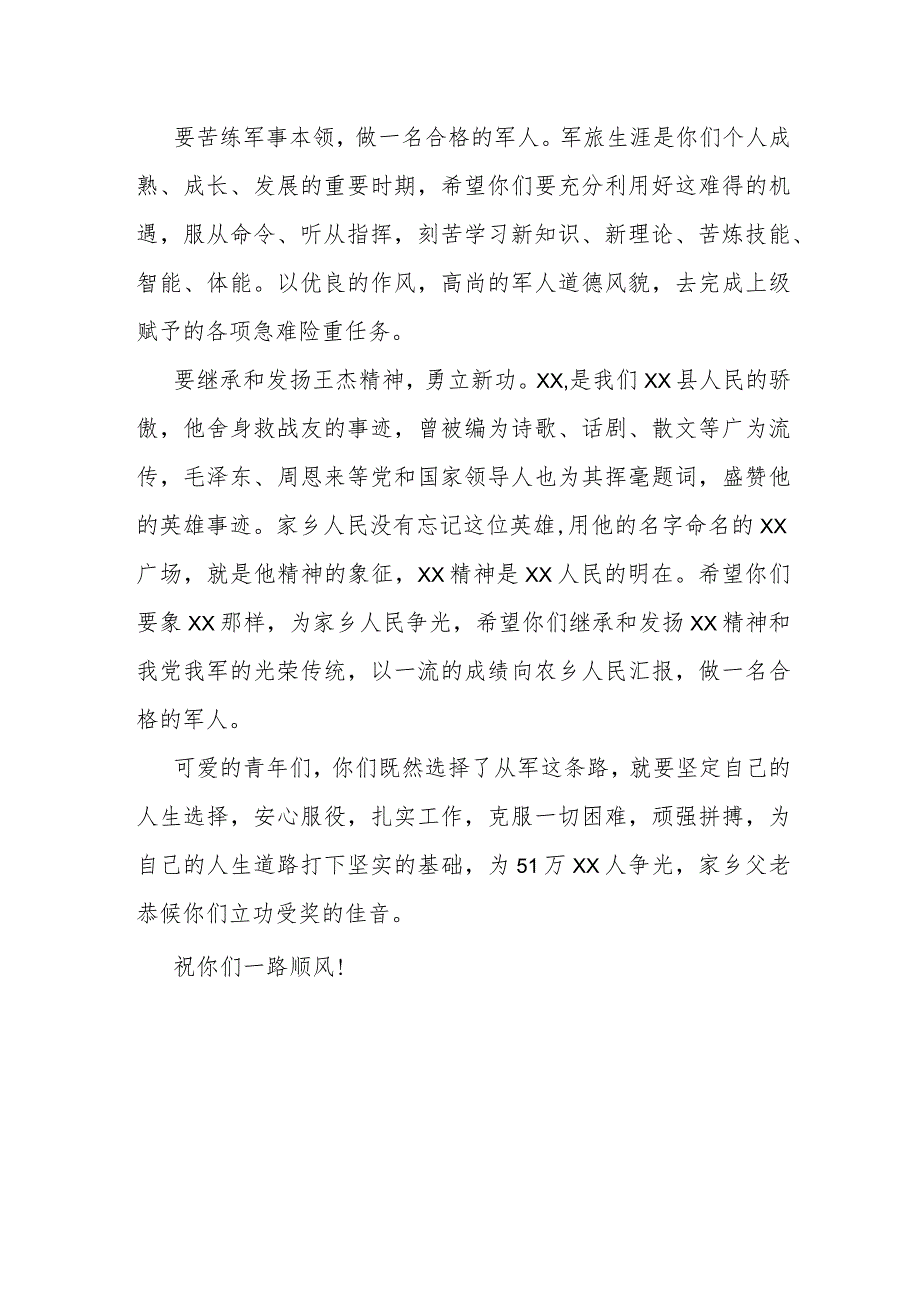 要苦练军事本领，做一名合格的军人。军旅生涯是你们个人成
熟、成长、发展的重要时期，希望你们要充分利用好这难得的机
遇，服从命令、听从指挥，刻苦学习新知识、新理论、苦炼技能、
智能、体能。以优良的作风，高尚的军人道德风貌，去完成上级
赋予的各项急难险重任务。
要继承和发扬王杰精神，勇立新功。XX,是我们 XX 县人民的骄
傲，他舍身救战友的事迹，曾被编为诗歌、话剧、散文等广为流
传，毛泽东、周恩来等党和国家领导人也为其挥毫题词，盛赞他
的英雄事迹。家乡人民没有忘记这位英雄,用他的名字命名的 XX
广场，就是他精神的象征，XX 精神是 XX 人民的明在。希望你们
要象 XX 那样，为家乡人民争光，希望你们继承和发扬 XX 精神和
我党我军的光荣传统，以一流的成绩向农乡人民汇报，做一名合
格的军人。
可爱的青年们，你们既然选择了从军这条路，就要坚定自己的
人生选择，安心服役，扎实工作，克服一切困难，顽强拼搏，为
自己的人生道路打下坚实的基础，为 51 万 XX 人争光，家乡父老
恭候你们立功受奖的佳音。
祝你们一路顺风!